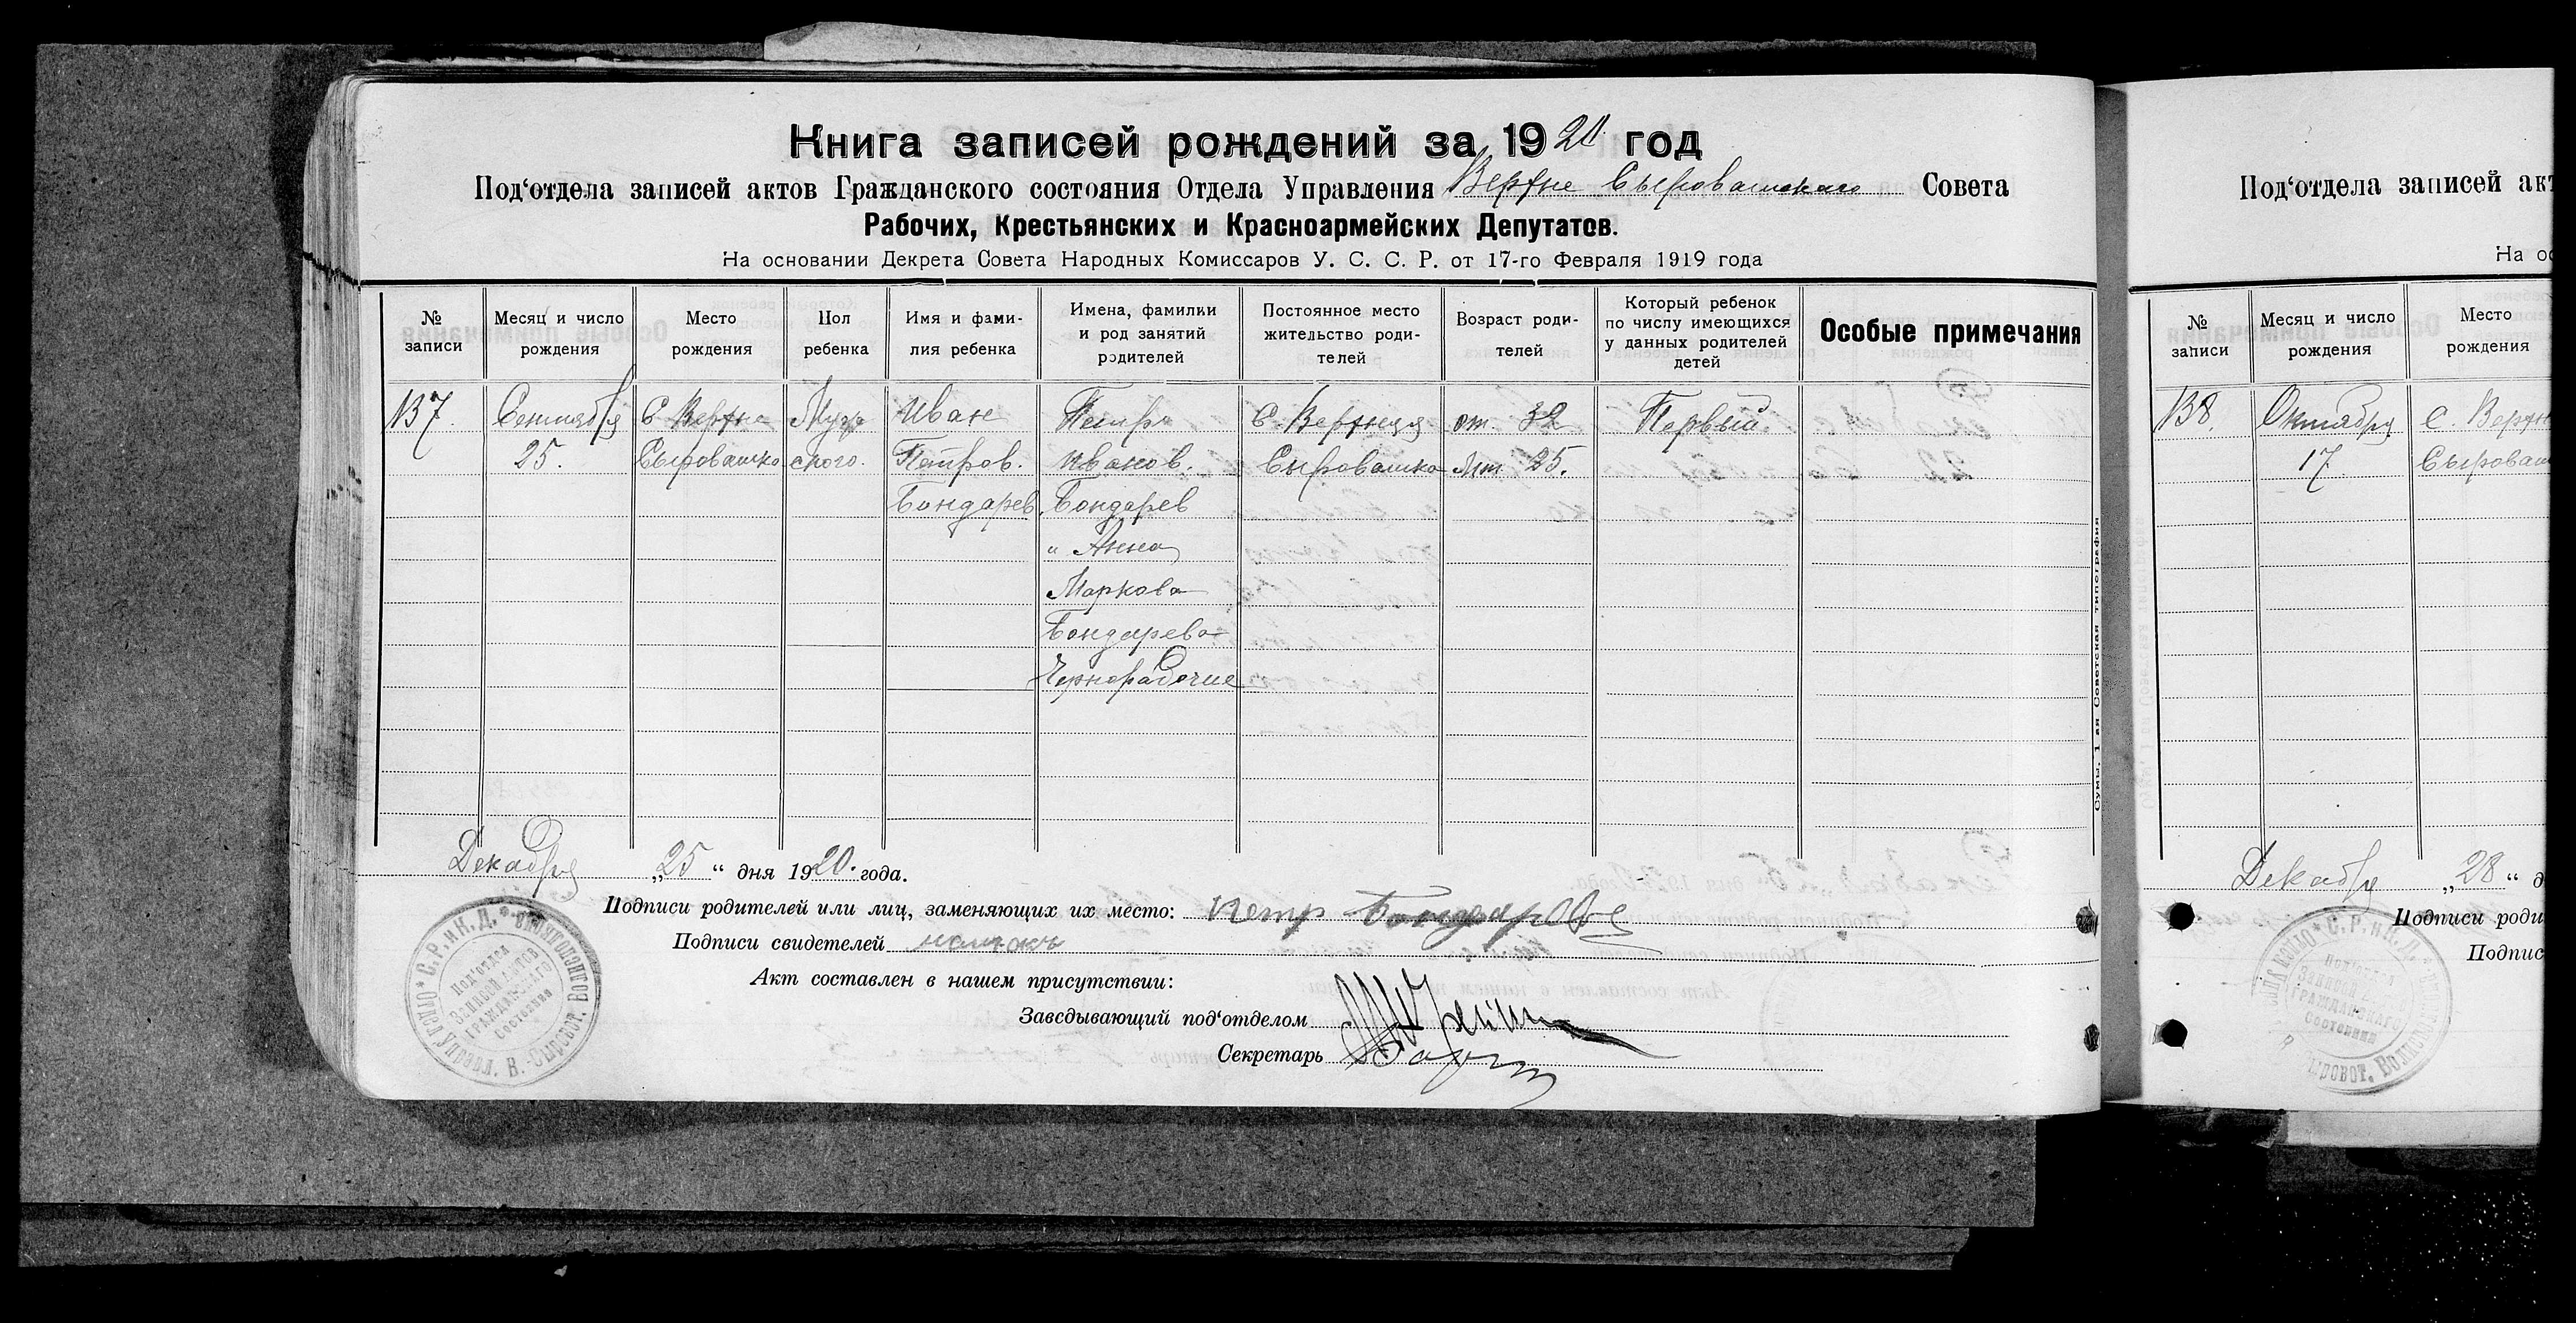 Книга записей рождений за 1920 год
Под‘отдела записей актов Гражданского состояния Отдела Управления Верхне Сыроватского Совета
Рабочих, Крестьянских и Красноармейских Депутатов.
На основании Декрета Совета Народных Комиссаров У. С. С. Р. от 17-го Февраля 1919 года
№ записи
Месяц и число рождения
Место рождения
Пол ребенка
Имя и фами-
лия ребенка
Имена, фамилии
и род занятий
родителей
Постоянное место
жительство роди-
телей
Возраст роди-
телей
Который ребенок
по числу имеющихся
у данных родителей
детей
Особые примечания
137. Сентября С. Верхне Муж Иван Петр С. Верхняя от. 32 Первый
25. Сыроватко ского. Петров. Иванов. Сыроватка Мт. 25.
Бондарев Бондарев
„ Анна
Маркова
Бондарева
Чернорабочие
Декабря „25“ дня 1920. года.
Подписи родителей или лиц, заменяющих их место: Петр Бондарев
Подписи свидетелей
Акт составлен в нашем присутствии:
Заведывающий под‘отделом
Секретарь
Сумы, 1 ая Советская типография
Под‘отдел
Записи Актов
Гражданского
Состояния
Под‘отдела записей акт
На ос
№ записи
Месяц и число рождения
Место рождения
138. Октября С. Верхн
17. Сыроват
Декабря „28“ д
Подписи роди
Подпис